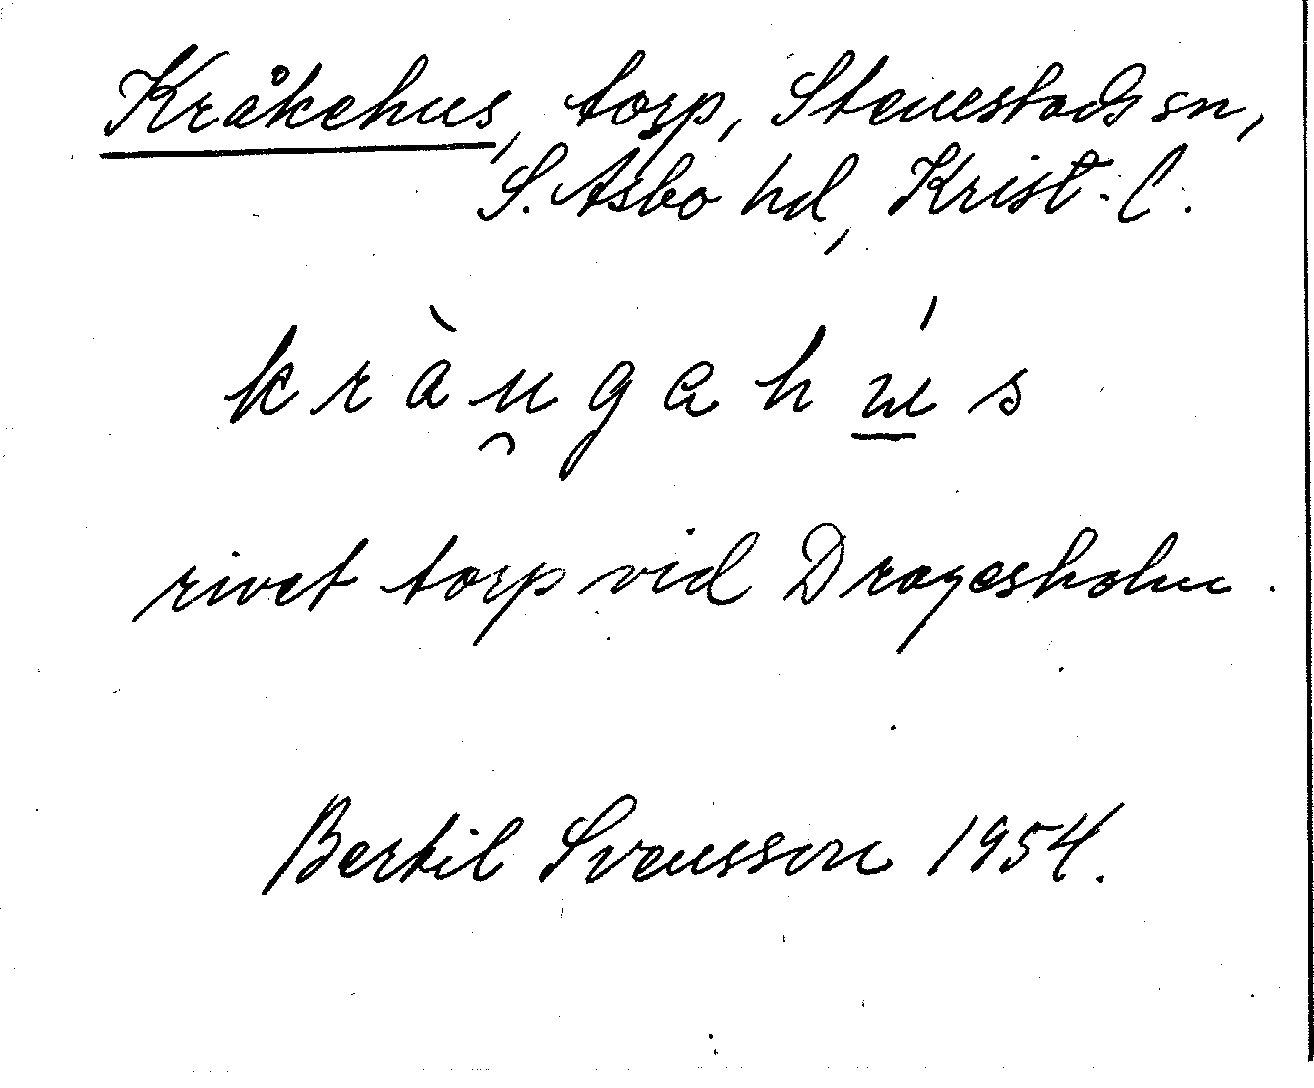 Kråkehus, torp, Stenestads sn,
S. Åsbo hd, Krist. l.
kràu̯gahú̲s
rivet torp vid Dragesholm.
Bertil Svensson 1954.